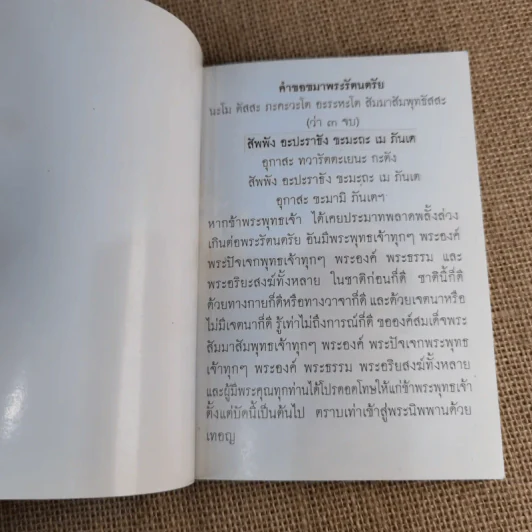 คำขอขมาพระรัตนตรัย
นะโม ตัสสะ ภะคะวะโต อะระหะโต สัมมาสัมพุทธัสสะ
(ว่า ๓ จบ)
สัพพัง อะปะราธัง ขะมะถะ เม ภันเต
อุกาสะ ทวารัตตะเยนะ กะตัง
สัพพัง อะปะราธัง ขะมะถะ เม ภันเต
อุกาสะ ขะมามิ ภันเตฯ
หากข้าพระพุทธเจ้า ได้เคยประมาทพลาดพลั้งล่วง
เกินต่อพระรัตนตรัย อันมีพระพุทธเจ้าทุกๆ พระองค์
พระปัจเจกพุทธเจ้าทุกๆ พระองค์ พระธรรม และ
พระอริยะสงฆ์ทั้งหลาย ในชาติก่อนก็ดี ชาตินี้ก็ดี
ด้วยทางกายก็ดีหรือทางวาจาก็ดี และด้วยเจตนาหรือ
ไม่มีเจตนาก็ดี รู้เท่าไม่ถึงการณ์ก็ดี ขอองค์สมเด็จพระ
สัมมาสัมพุทธเจ้าทุกๆ พระองค์ พระปัจเจกพระพุทธ
เจ้าทุกๆ พระองค์ พระธรรม พระอริยสงฆ์ทั้งหลาย
และผู้มีพระคุณทุกท่านได้โปรดอดโทษให้แก่ข้าพระพุทธเจ้า
ตั้งแต่บัดนี้เป็นต้นไป ตราบเท่าเข้าสู่พระนิพพานด้วย
เทอญ